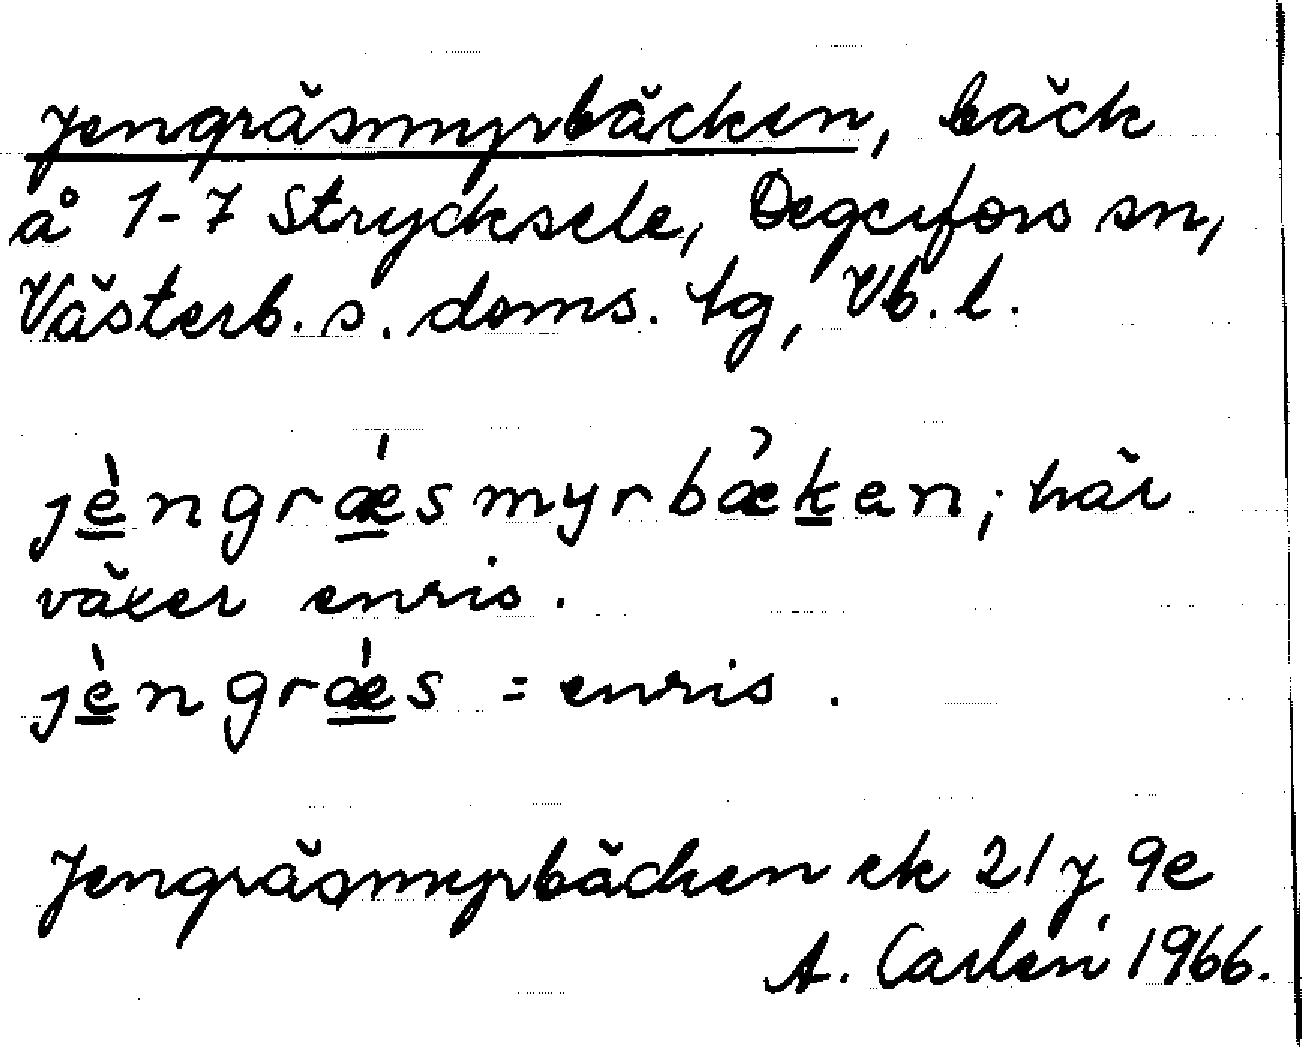 Jengräsmyrbäcken, bäck
å 1-7 Strycksele, Degerfors sn,
Västerb. s. doms. tg, Vb. l.
jèngrǽsmyrbækan; här
växer enris.
jèngrǽs = enris.
Jengräsmyrbäcken ek 21 J 9e
A. Carlén 1966.